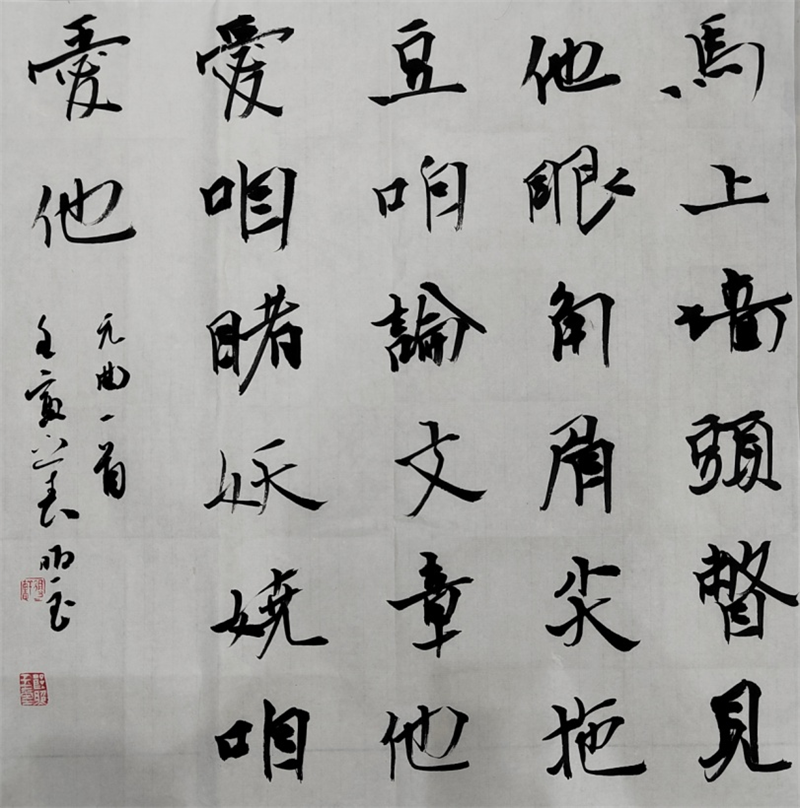 馬上墻頭瞥見
他眼角眉尖拖
豆咱論文章他
愛咱睹妖嬈咱
愛他
元曲一首
壬寅之春明玉